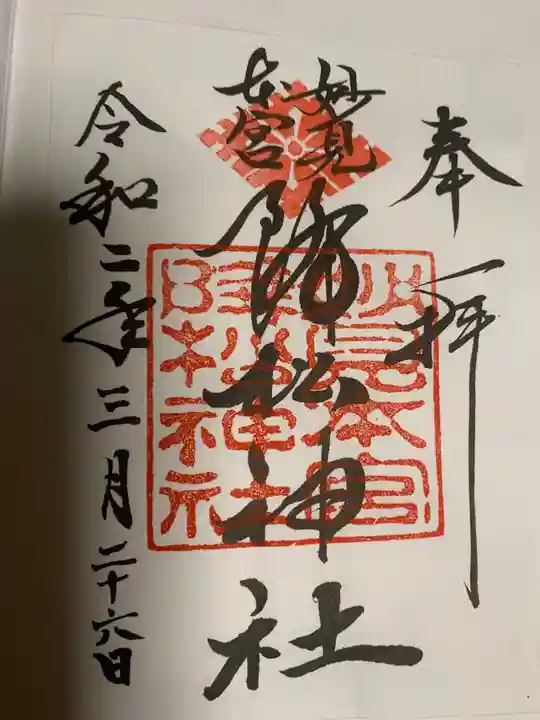 奉拝
妙見
本宮
降松神社
令和二年三月二十六日